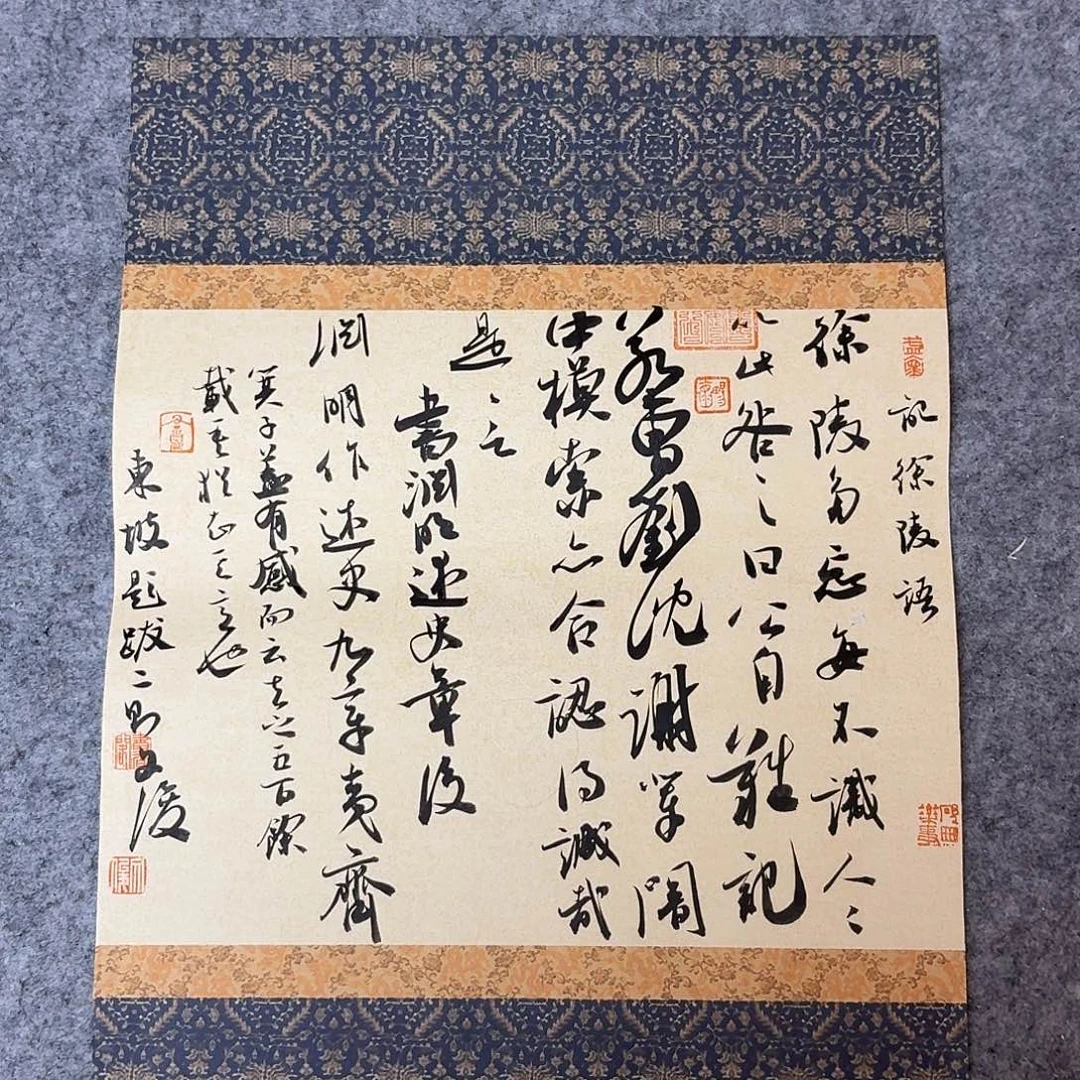 記徐陵語
徐陵多忘每不識人人
以此咎之曰公自難記
若曹劉沈謝輩闇
中摸索亦合認得誠哉
是是言
書淵明述史章後
淵明作述史九章夷齊
箕子蓋有感而云去之五百餘
載吾猶知其意也
東坡題跋二則文浚